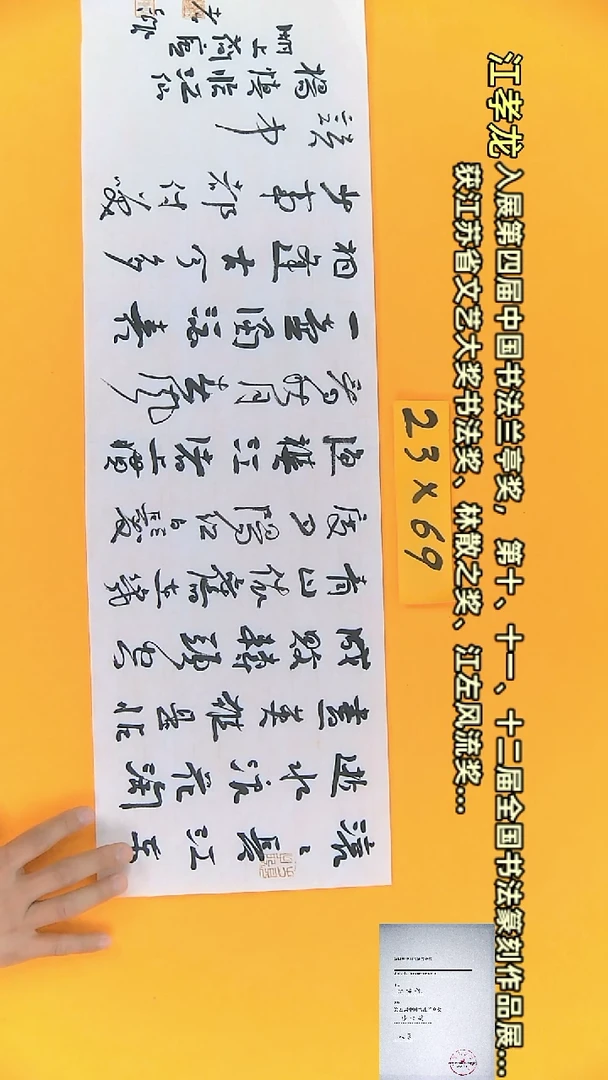 江孝龙 入展第四届中国书法兰亭奖，第十、十一、十二届全国书法篆刻作品展...
获江苏省文艺大奖书法奖、林散之奖、江左风流奖...
23×69
滚〻長江東
逝水浪花淘
盡英雄是非
成敗轉頭空
青山依舊在幾
度夕陽紅白髮
漁樵江渚上慣
看秋月春風
一壺濁酒喜
相逢古今多
少事都付笑
談中
楊慎臨江仙